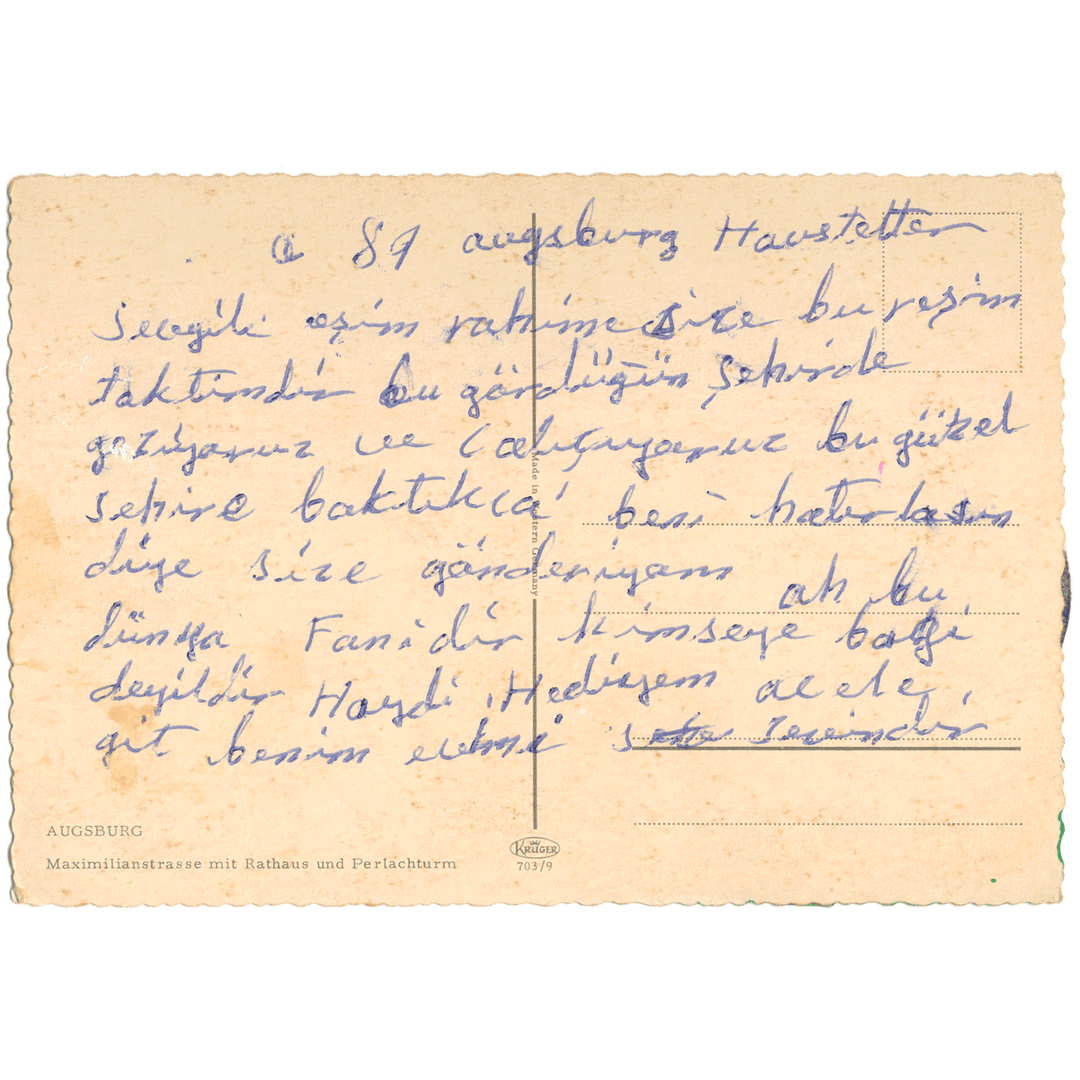 a 89 augsburg Haustetter
Sevgili eşim rahime size bu reşim
taktimdir bu gördüğün şehirde
geziyoruz ve Calışıyoruz bu güzel
sehire baktıkca beni hatırlasın
diye size gönderiyom ah bu
dünya Fanidir kimseye baği
deyildir Haydi, Hediyem acele,
git benim
AUGSBURG
Maximilianstrasse mit Rathaus und Perlachturm
KRÜGER
703/9
Made in Western Germany